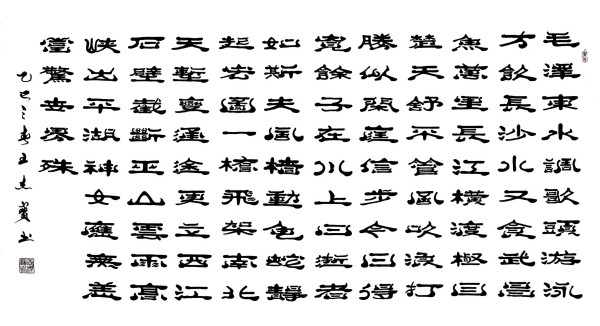 毛澤東水調歌頭游泳
才飲長沙水又食武昌
魚萬里長江橫渡極目
楚天舒不管風吹浪打
勝似閑庭信步今日得
寬餘子在川上曰逝者
如斯夫風檣動龜蛇靜
起宏圖一橋飛架南北
天塹變通途更立西江
石壁截斷巫山雲雨高
峽出平湖神女應無恙
當驚世界殊
乙巳之春王志書